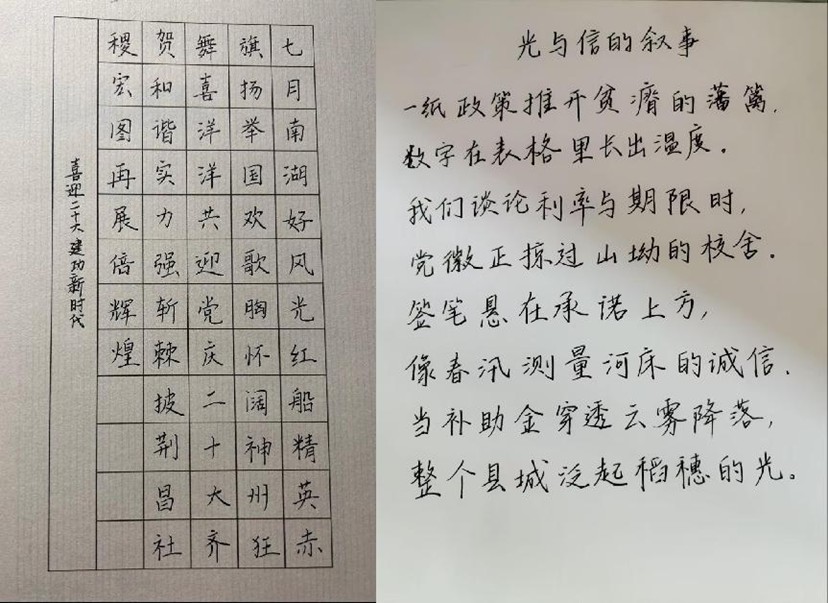 七月南湖好风光红船精英赤
旗扬举国欢歌胸怀阔神州狂
舞喜洋洋共迎党庆二十大齐
贺和谐实力强斩棘披荆昌社
稷宏图再展倍辉煌
喜迎二十大建功新时代
光与信的叙事
一纸政策推开贫瘠的藩篱，
数字在表格里长出温度。
我们谈论利率与期限时，
党徽正掠过山坳的校舍。
签笔悬在承诺上方，
像春汛测量河床的诚信，
当补助金穿透云雾降落，
整个县城泛起稻穗的光。